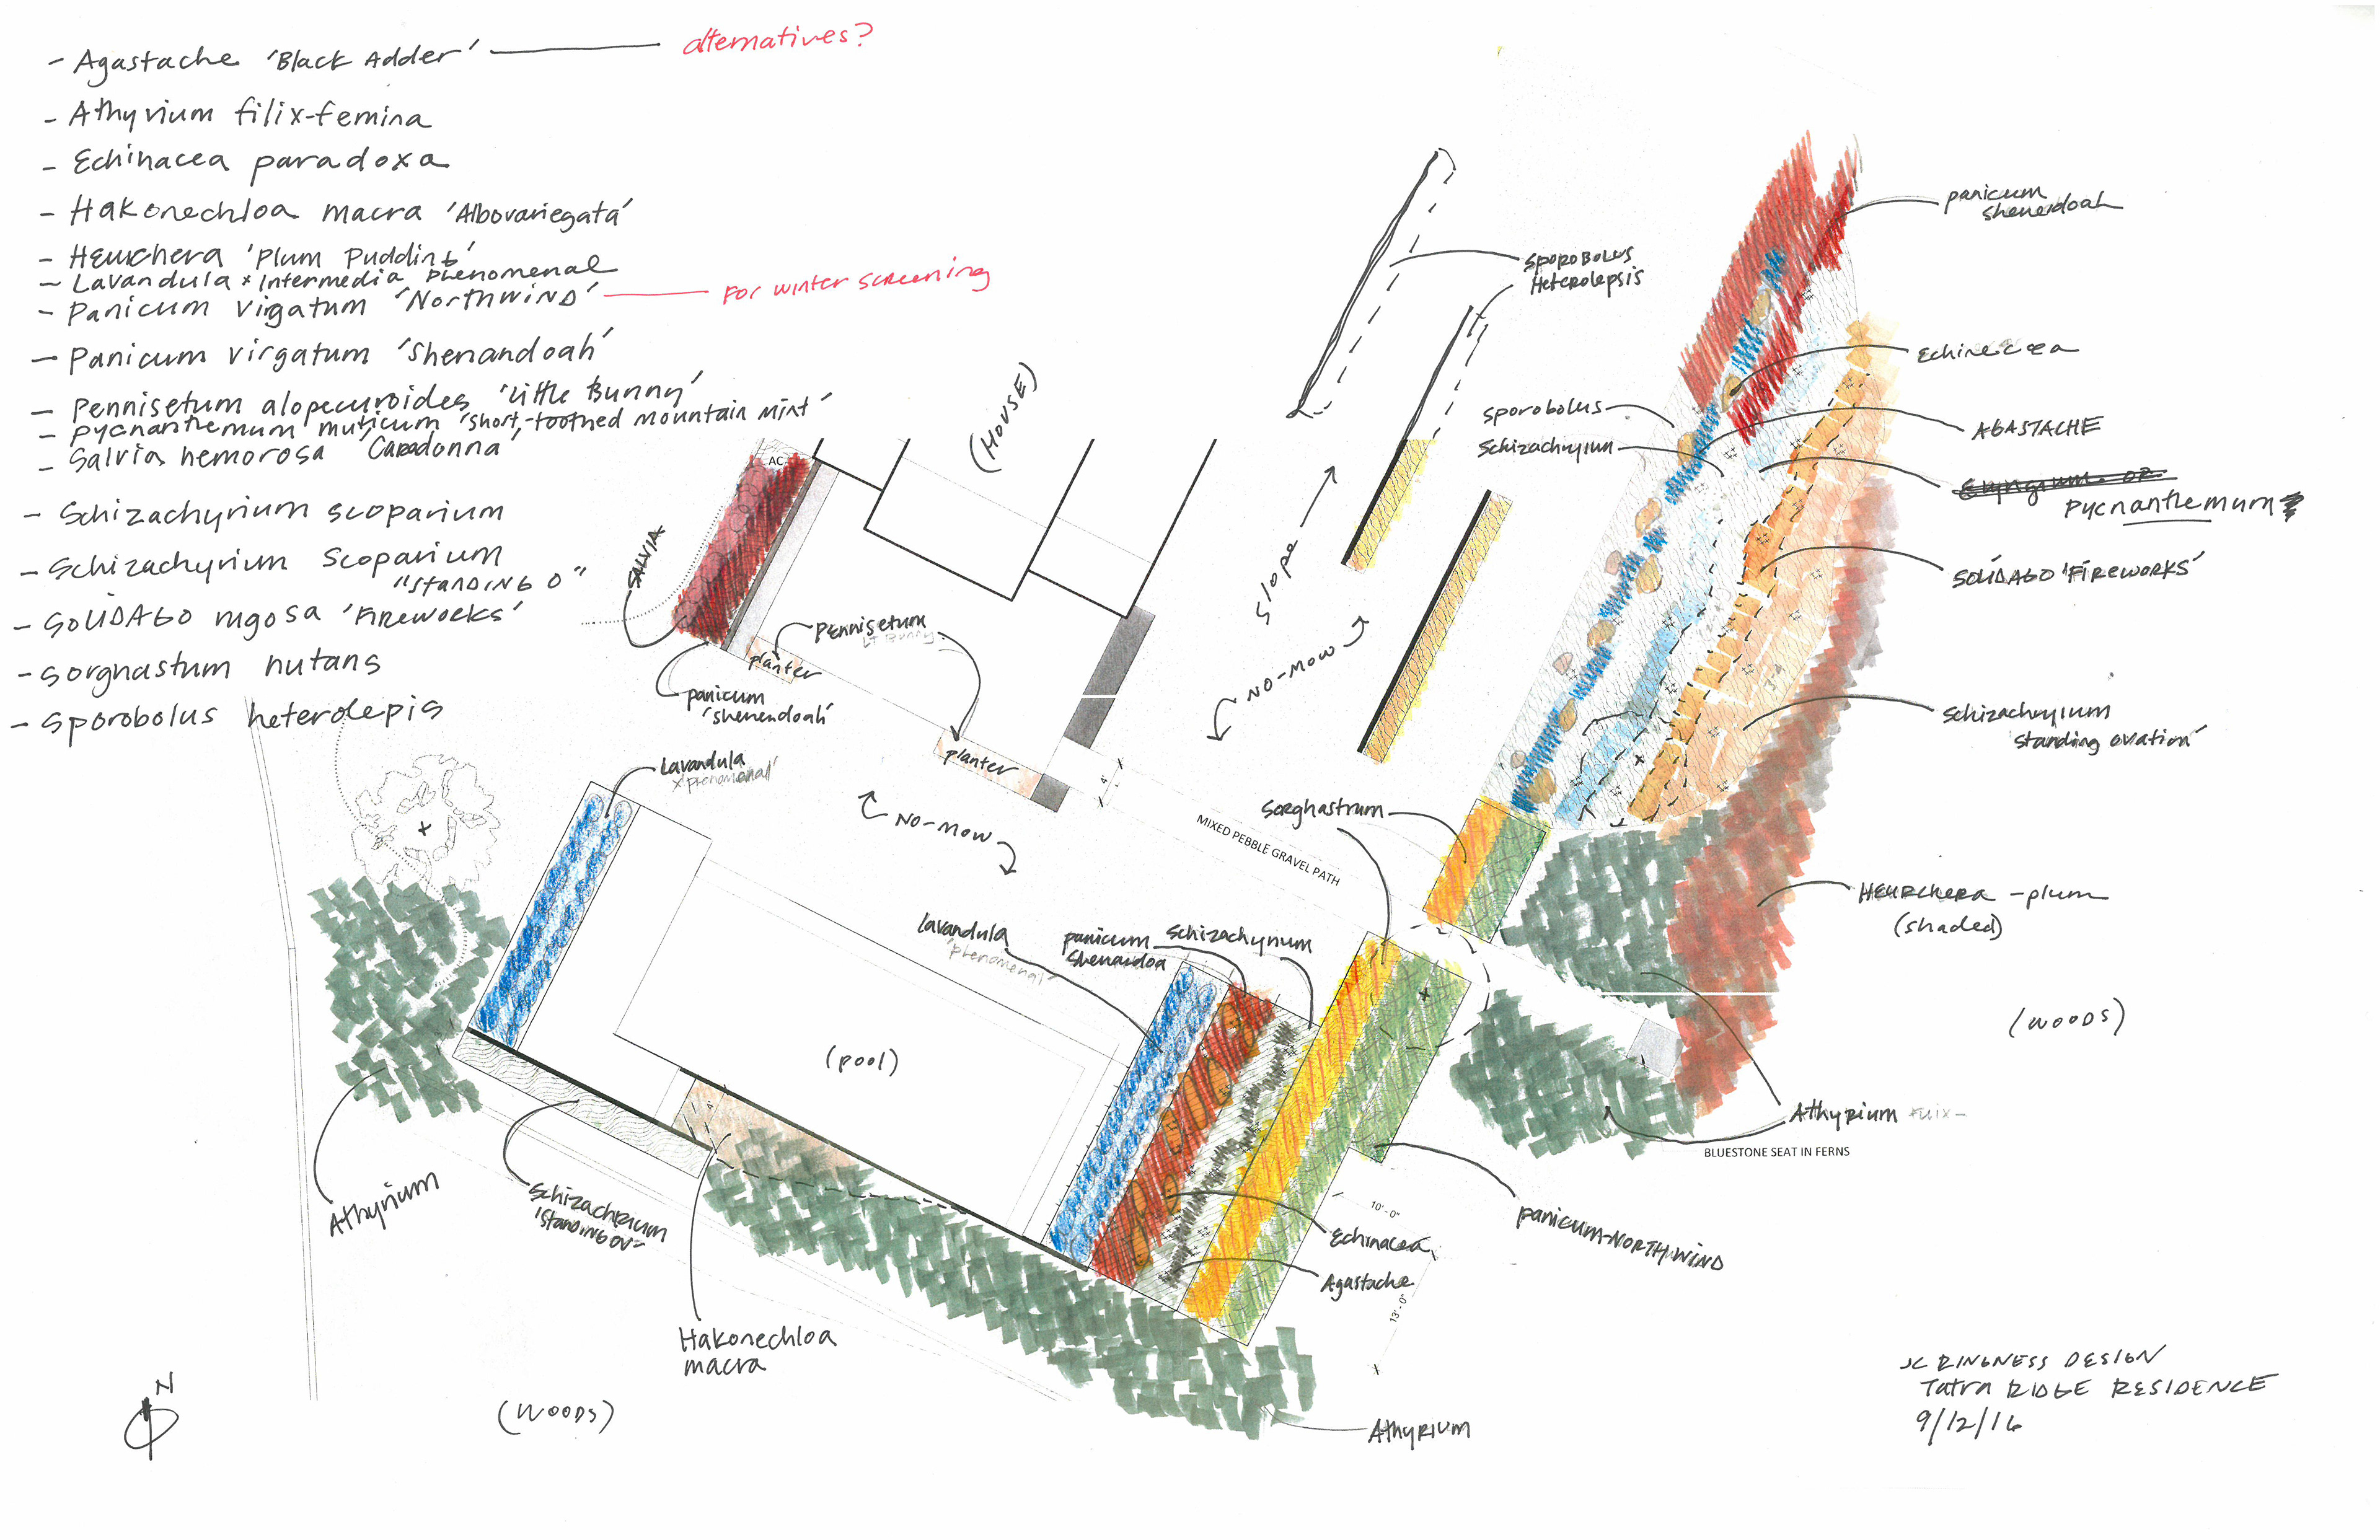 - Agastache 'Black Adder' alternatives?
- Athyrium filix-femina
- Echinacea paradoxa
- Hakonechloa macra 'Albovariegata'
- Heuchera 'Plum Pudding'
- Lavandula x Intermedia Phenomenal
- Panicum virgatum 'Northwind' For winter screening
- Panicum virgatum 'Shenandoah'
- Pennisetum alopecuroides 'Little Bunny'
- Pycnanthemum muticum 'short-toothed mountain mint'
- Salvia nemorosa 'Caradonna'
- Schizachyrium scoparium
- Schizachyrium scoparium
"STANDING O"
- SOLIDAGO rugosa 'FIREWORKS'
- Sorghastum nutans
- Sporobolus heterolepis
panicum
shenendoah
SPOROBOLUS
Heterolepsis
Echinecea
sporobolus
Schizachyrium
AGASTACHE
Eryngium or
pycnanthemum
SOLIDAGO 'FIREWORKS'
Schizachyrium
standing ovation'
(HOUSE)
AC
SALVIA
Slope
NO-MOW
PENNISETUM
LT Bunny
planter
panicum
'shenendoah'
planter
4'
Lavandula
x phenomenal'
NO-MOW
MIXED PEBBLE GRAVEL PATH
Sorghastrum
HEURCHERA - plum
(shaded)
lavandula
'phenomenal'
panicum
Shenandoa
Schizachyrium
(WOODS)
(pool)
4'
Athyrium FILIX-
BLUESTONE SEAT IN FERNS
Athyrium
Schizachrium
'STANDING OV-
10'-0"
panicum-NORTHWIND
Echinacea
Agastache
13'-0"
Hakonechloa
macra
N
(WOODS)
ATHYRIUM
JC RINGNESS DESIGN
Tatra RIDGE RESIDENCE
9/12/16